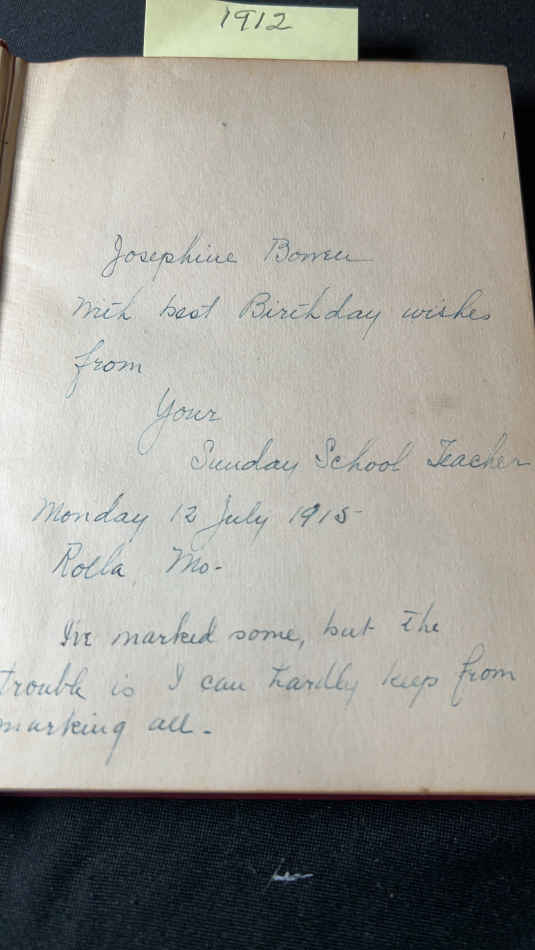 1912
Josephine Bowen
With best Birthday wishes
from
Your
Sunday School Teacher
Monday 12 July 1915
Rolla, Mo-
I've marked some, but the
trouble is I can hardly keep from
marking all.